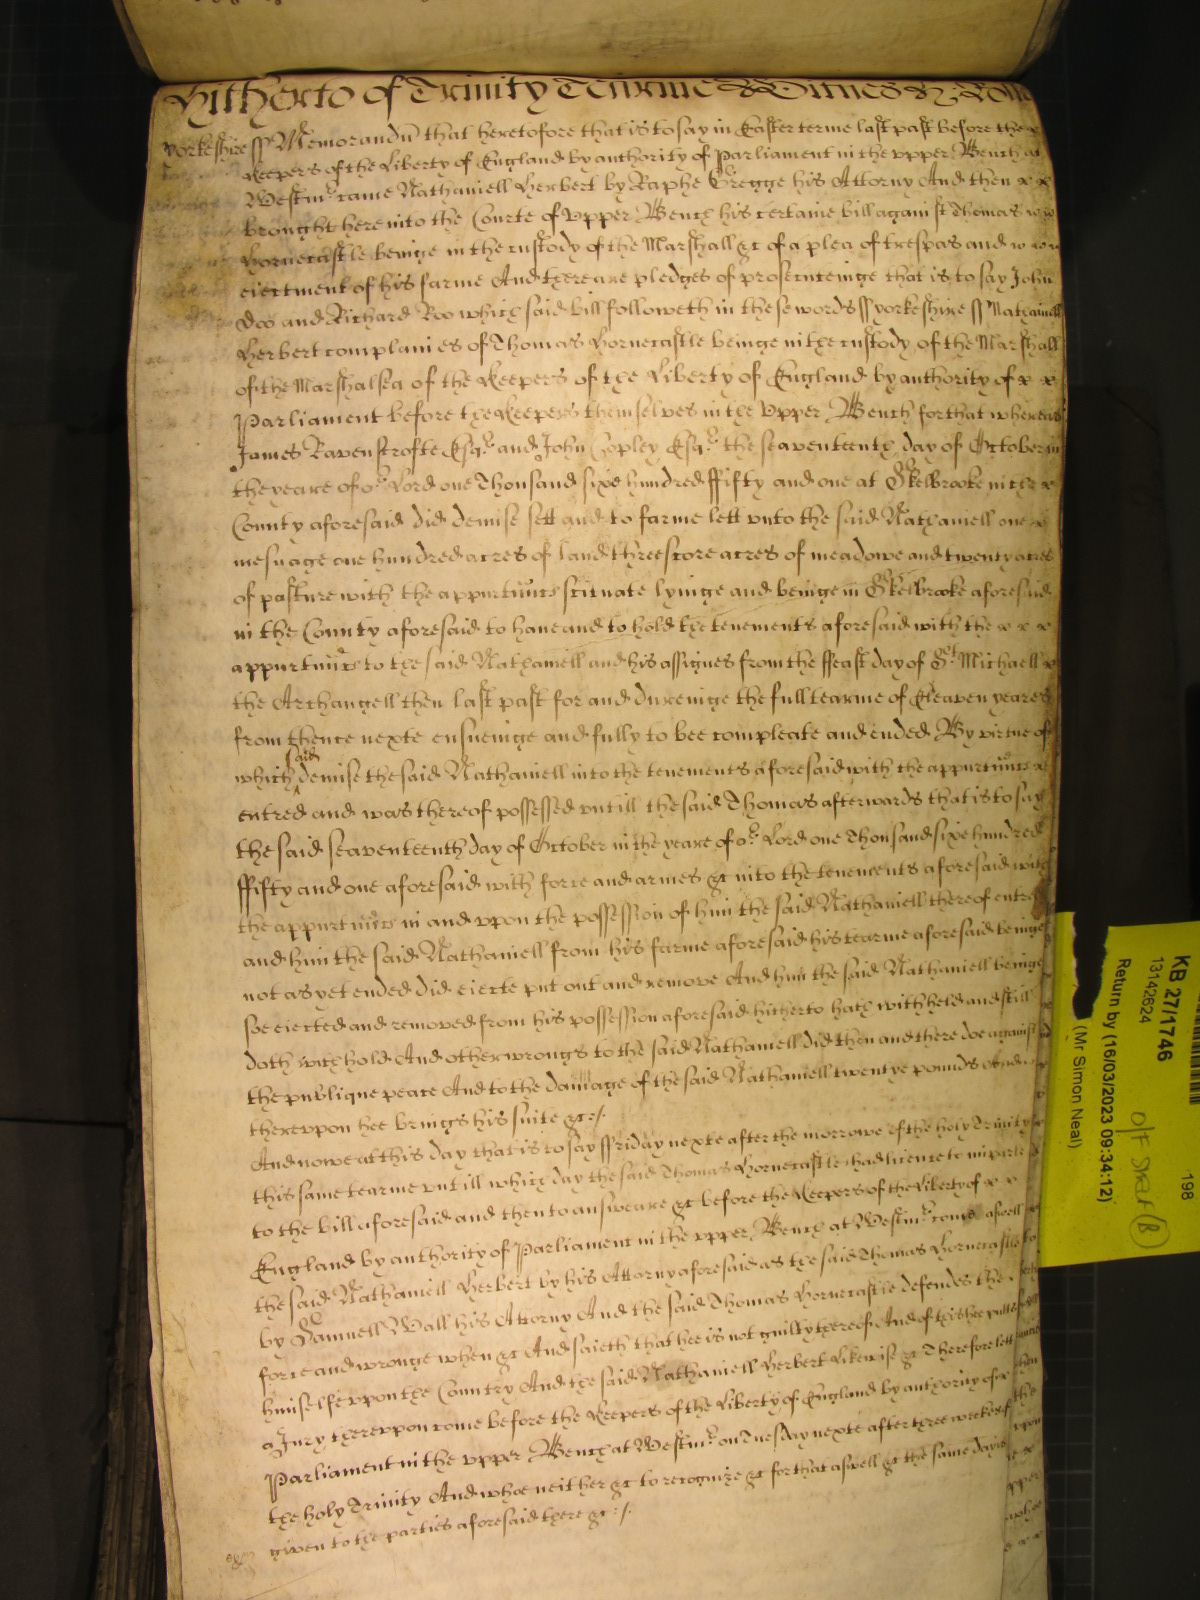 Hitherto of Trinity Tearme
Yorkeshire ss Memorandu that heretofore that is to say in Easter terme last past before the
Keepers of the Liberty of England by authority of Parliament in the vpper Bench at
Westmr came Nathaniell Herbert by Raphe Gregge his Attorny And then x x
brought here into the Courte of vpper Bench his certaine bill against Thomas
Hornecastle beinge in the custody of the Marshall &c of a plea of trespas and
eiectment of his farme And there are pledges of prosecuteinge that is to say John
Doo and Richard Roo which said bill followeth in these words ss yorkeshire ss Nathaniell
Herbert complaines of Thomas Hornecastle beinge in the custody of the Marshall
of the Marshalsea of the Keepers of the Liberty of England by authority of x x
Parliament before the Keepers themselves in the vpper Bench for that whereas
James Ravenscrofte Esqr and John Copley Esqr the seaventeenth day of October in
the yeare of or Lord one Thousand sixe hundred ffifty and one at Skelbrooke in the x
County aforesaid did demise sett and to farme lett vnto the said Nathaniell one x
mesuage one hundred acres of land threescore acres of meadowe and twenty acres
of pasture with the appurtnncs scituate lyinge and beinge in Skelbrooke aforesaid
in the County aforesaid to haue and to hold the tenements aforesaid with the x x x
appurtnncs to the said Nathaniell and his assignes from the ffeast day of St Michaell x
the Archangell then last past for and dureinge the full tearme of Eleaven yeares
from thence nexte ensueinge and fully to bee compleate and ended By virtue of
which said demise the said Nathaniell into the tenements aforesaid with the appurtnncs x
entred and was thereof possessed vntill the said Thomas afterwards that is to say
the said seaventeenth day of October in the yeare of or Lord one Thousand sixe hundred
ffifty and one aforesaid with force and armes &c into the tenements aforesaid with
the appurtnncs in and vpon the possession of him the said Nathaniell thereof entred
and him the said Nathaniell from his farme aforesaid his tearme aforesaid beinge
not as yet ended did eiecte put out and remove And him the said Nathaniell beinge
soe eiected and removed from his possession aforesaid hitherto hath withheld and still
doth withhold And other wrongs to the said Nathaniell did then and there doe against
the publique peace And to the damage of the said Nathaniell twentye pounds And
therevpon hee brings his suite &c :/.
And nowe at this day that is to say ffriday nexte after the morrowe of the holy Trinity
this same tearme vntill which day the said Thomas Hornecastle had licence to imparle
to the bill aforesaid and then to answeare &c before the Keepers of the Liberty of x x
England by authority of Parliament in the vpper Bench at Westmr come aswell
the said Nathaniell Herbert by his Attorny aforesaid as the said Thomas Hornecastle
by Samuell Wall his Attorny And the said Thomas Hornecastle defendes the
force and wronge when &c And saieth that hee is not guilty thereof And of this hee putts
himselfe vpon the Country And the said Nathaniell Herbert likewise &c Therefore lett
a Jury therevpon come before the Keepers of the Liberty of England by authority of x
Parliament in the vpper Bench at Westmr on Tuesday nexte after three weekes of
the holy Trinity And whoe neither &c to recognize &c for that aswell &c the same day is
given to the parties aforesaid there &c :/.
KB 27/1746
198
13142624
Return by (16/03/2023 09:34:12)
(Mr Simon Neal)